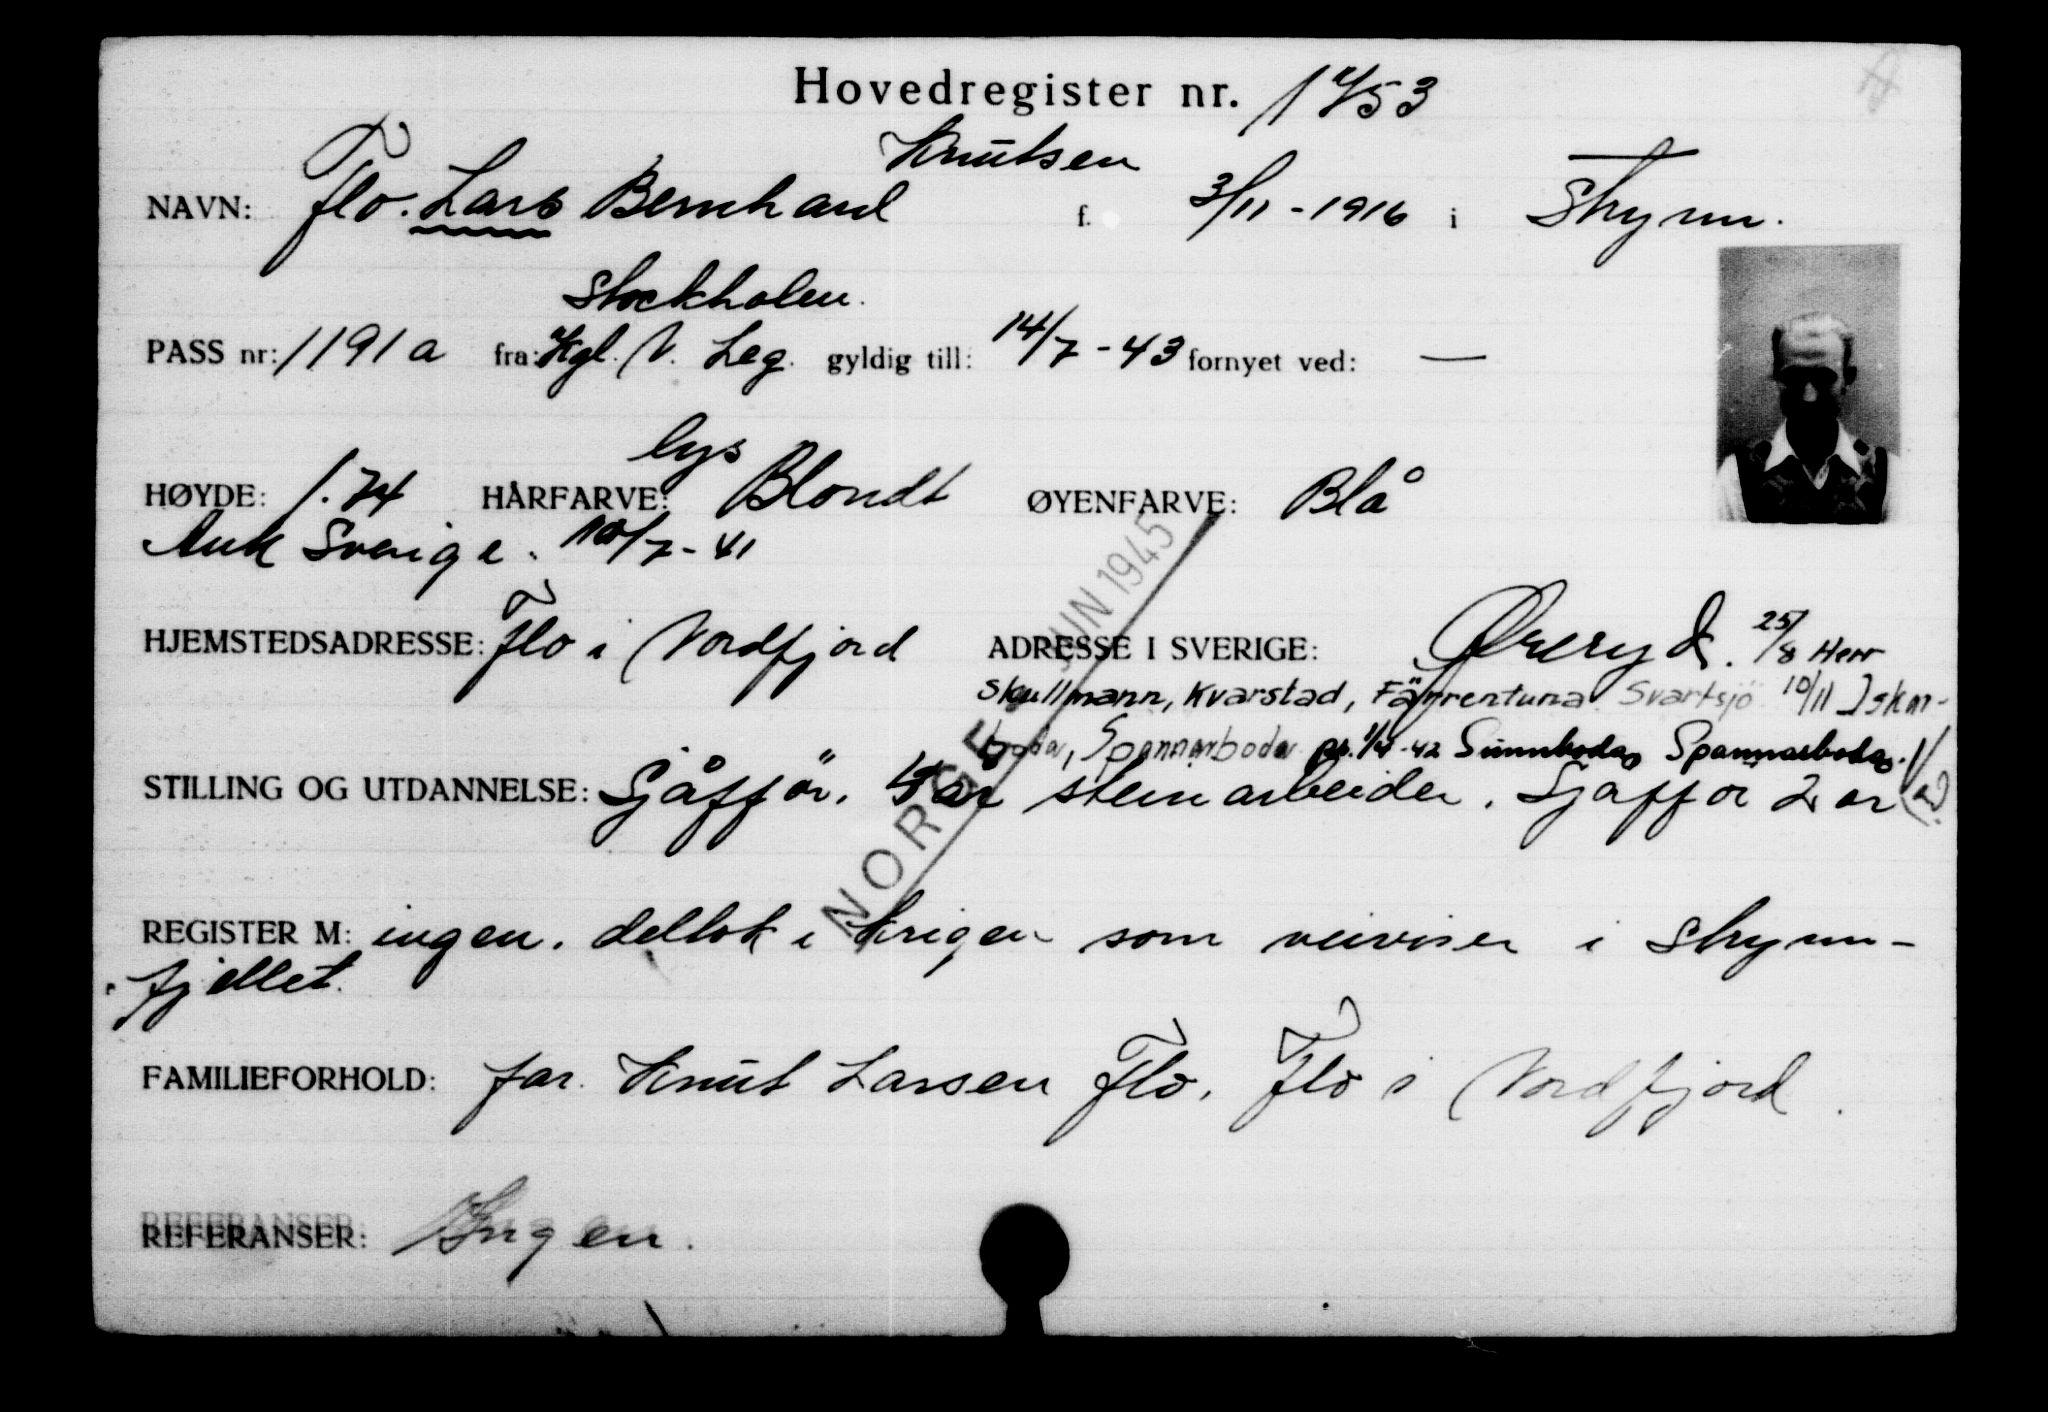 Hovedregister nr. 1453
Knutsen
NAVN: Flo. Lars Bernhard f. 3/11-1916 i Strynn.
Stockholm.
PASS nr: 1191a fra: Kgl. N. Leg. gyldig till: 14/7-43 fornyet ved: —
lys
HØYDE: 1.74 HÅRFARVE: Blondt ØYENFARVE: Blå
Ank Sverige. 10/7-41
HJEMSTEDSADRESSE: Flo i Nordfjord ADRESSE I SVERIGE: Øreryd. 25/8 Herr
Skullmann, Kvarstad, Färrentuna Svartsjö 10/11 Iskar-
boda, Spannarboda pr. 1/4-42 Sunnboda, Spannarboda.
STILLING OG UTDANNELSE: Sjåffør. år steinarbeider. Sjåffør 2 år
NORGE JUN 1945
REGISTER M: ingen. deltok i krigen som veiviser i Strynn-
fjellet.
FAMILIEFORHOLD: far. Knut Larsen Flo. Flo i Nordfjord.
REFERANSER: Ingen.